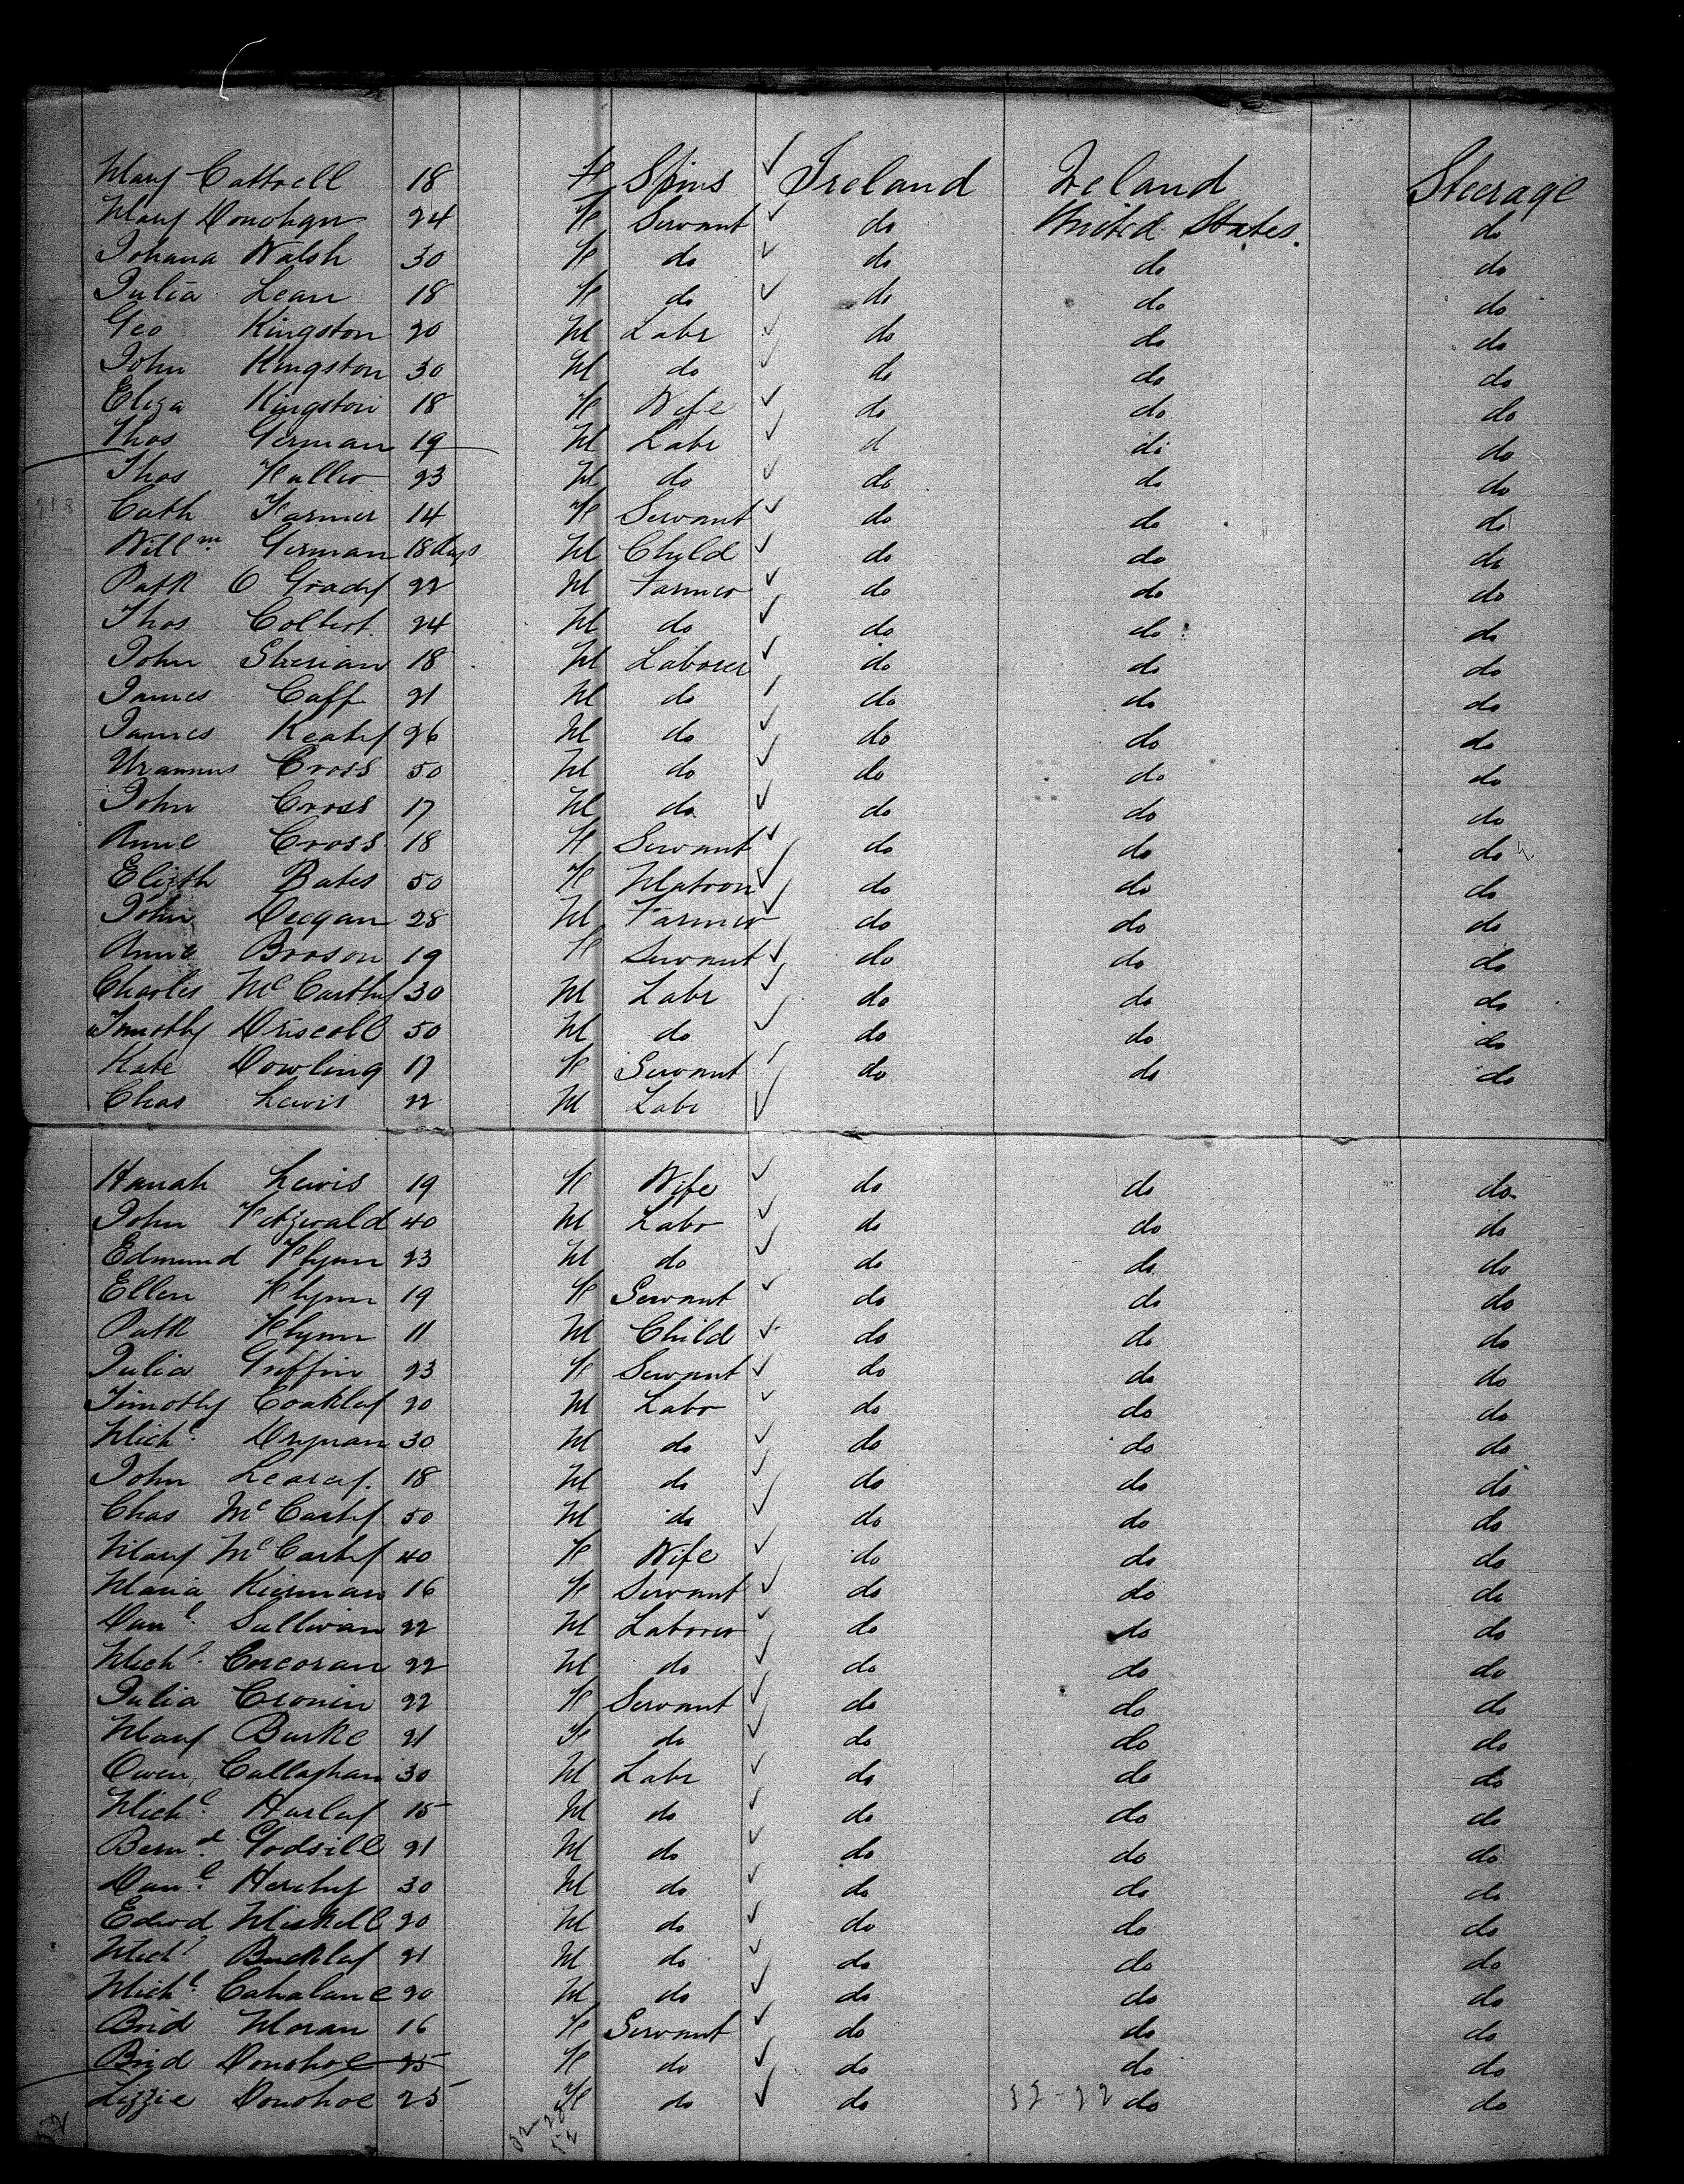 Mary Cottrell 18 F Spins ✓ Ireland Ireland Steerage
Mary Donohgu 24 F Servant ✓ do United States. do
Johana Walsh 30 F do ✓ do do do
Julia Lean 18 F do ✓ do do do
Geo Kingston 20 M Labr ✓ do do do
John Kingston 30 M do ✓ do do do
Eliza Kingston 18 F Wife ✓ do do do
Thos German 19 M Labr ✓ d do do
Thos Fuller 23 M do ✓ do do do
218 Cath Farmer 14 F Servant ✓ do do do
Willm. German 18 days M Child ✓ do do do
Patk O Grady 22 M Farmer ✓ do do do
Thos Colbert 24 M do ✓ do do do
John Sherian 18 M Laborer ✓ do do do
James Caff 21 M do ✓ do do do
James Keatey 26 M do ✓ do do do
Urammus Cross 50 M do ✓ do do do
John Cross 17 M do ✓ do do do
Anne Cross 18 F Servant ✓ do do do
Elizth Bates 50 F Matron ✓ do do do
John Deegan 28 M Farmer ✓ do do do
Anne Broson 19 F Servant ✓ do do do
Charles McCarthy 30 M Labr ✓ do do do
Timothy Driscoll 50 M do ✓ do do do
Kate Dowling 17 F Servant ✓ do do do
Chas Lewis 22 M Labr ✓
Hanah Lewis 19 F Wife ✓ do do do
John Fitzgerald 40 M Labr ✓ do do do
Edmund Flynn 23 M do ✓ do do do
Ellen Flynn 19 F Servant ✓ do do do
Patk Flynn 11 M Child ✓ do do do
Julia Griffin 23 F Servant ✓ do do do
Timothy Coakley 20 M Labr ✓ do do do
Michl. Drynan 30 M do ✓ do do do
John Learey. 18 M do ✓ do do do
Chas McCartey 50 M do ✓ do do do
Mary McCartey 40 F Wife ✓ do do do
Maria Kiernan 16 F Servant ✓ do do do
Danl. Sullivan 22 M Laborer ✓ do do do
Michl. Corcoran 22 M do ✓ do do do
Julia Cronin 22 F Servant ✓ do do do
Mary Burke 21 F do ✓ do do do
Owen Callaghan 30 M Labr ✓ do do do
Michl. Hurley 15 M do ✓ do do do
Bernd. Godsill 21 M do ✓ do do do
Danl. Herehy 30 M do ✓ do do do
Edwd Miskell 20 M do ✓ do do do
Michl Buckley 21 M do ✓ do do do
Michl. Cahalane 20 M do ✓ do do do
Brid Moran 16 F Servant ✓ do do do
Brid Donohoe 25 F do ✓ do do do
Lizzie Donohoe 25 F do ✓ do do do